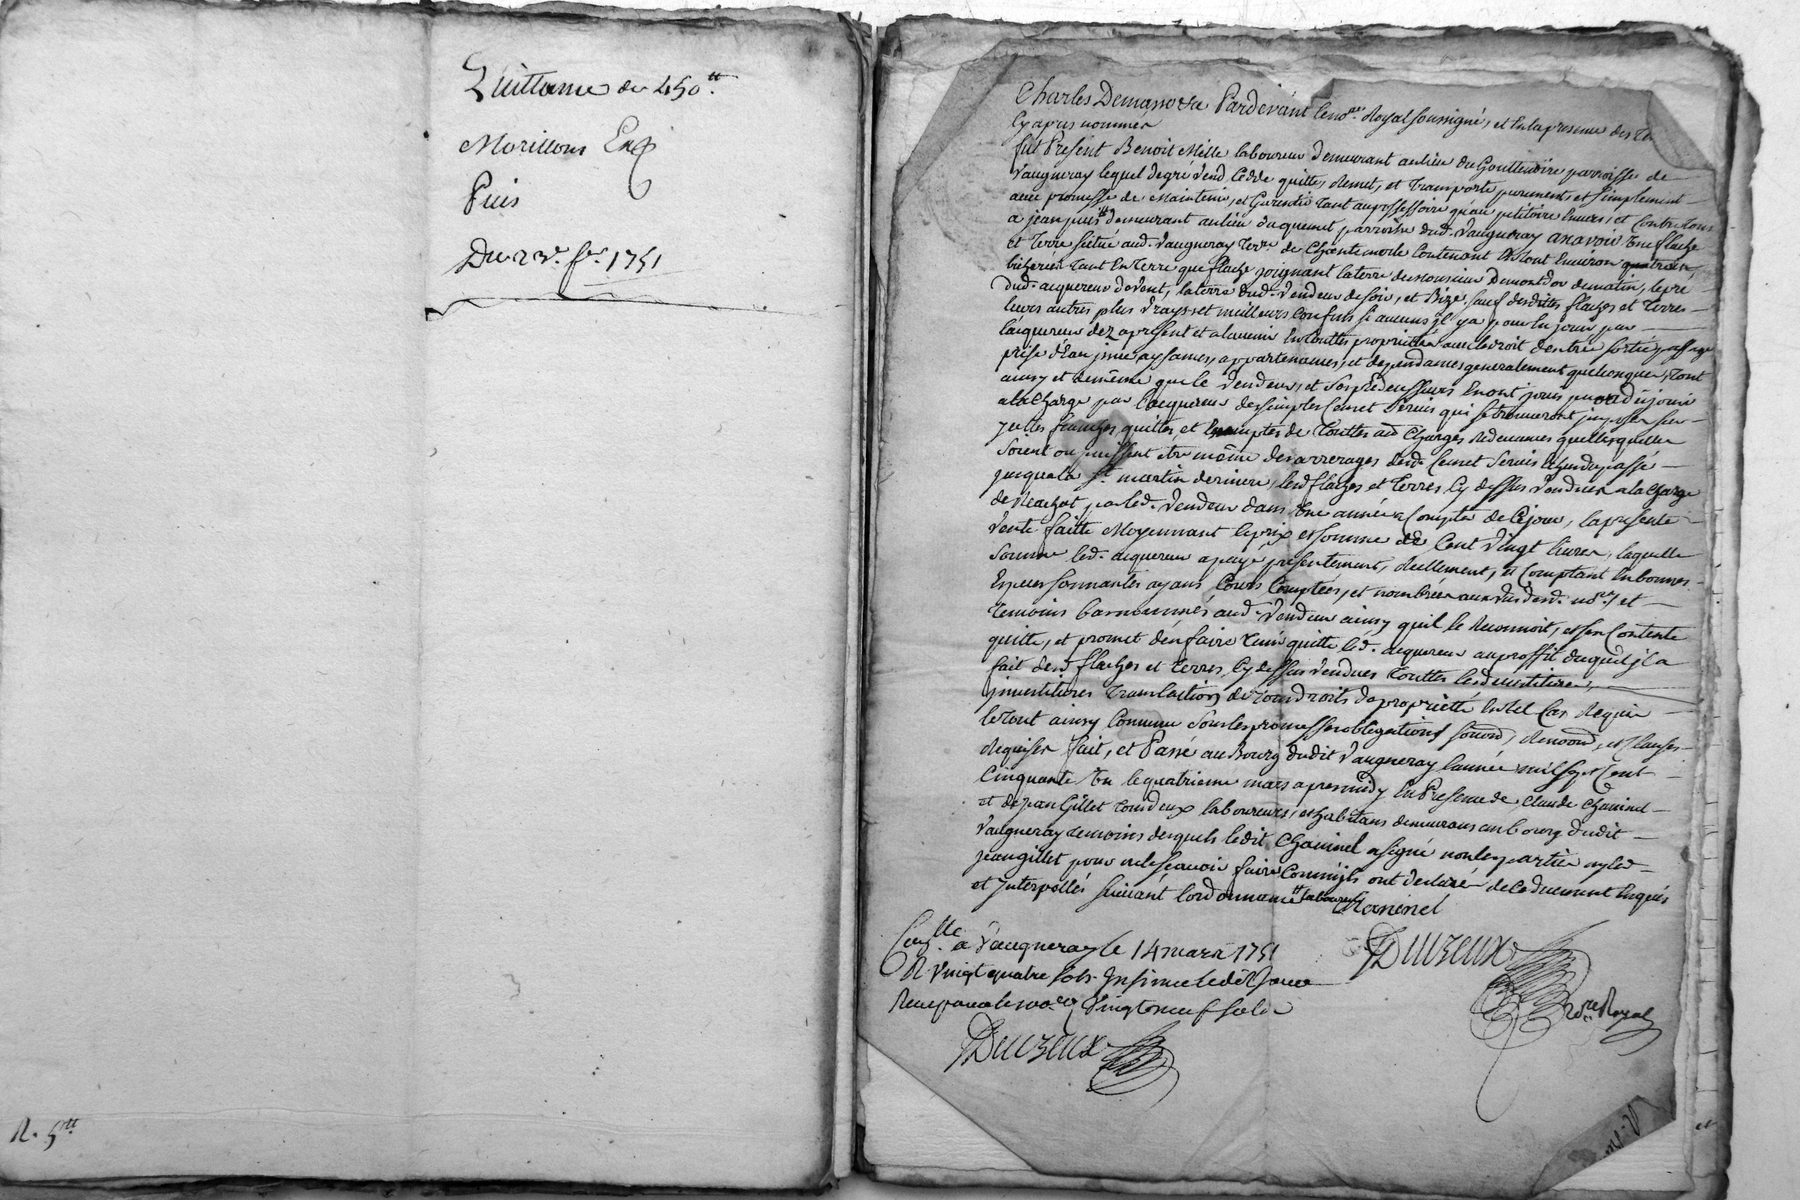 Quittance de 450.tt
Morillons
Puis
Du 23e. fer. 1751
R. 5tt
Charles Pardevant le nore. Royal soussigné, et en la presence des
Cy apres nommés
fut Present Benoit Mille laboureur demeurant au lieu du Gouttenoire parroisse de
Vaugneray lequel de gré vend cedde quitte, remet, et transporte purement, et simplement
avec promesse de maintenir, et garentir tant au possessoire qu'au petitoire envers, et contre tous
a jean puis demeurant au lieu duquemet parroisse dud. Vaugneray a scavoir une flache
et terre scitué aud. Vaugneray terre. de Chantemerle contenant le tout environ
bicherées tant en terre que flache joignant la terre de monsieur Demontdor de matin, le pré
dud. acquereur de vent, la terre dud. vendeur de soir, et bize. sauf desdittes flaches et terres
leurs autres plus vrays et meilleurs confins si aucuns il y a pour en jouir par
l'acquereur dez a present et a l'avenir en touttes proprietés avec le droit d'entrée sortie, passage
prise d'eau, jssue aysances, appartenances, et dependances generalement quelconques, tout
ainsy et de même que le vendeur, et ses predecesseurs en ont jouis pu ou dû jouir
a la charge par l'acquereur des simples cens et servis qui se trouveront jmposés sur
jcelles franches, quittes, et exemptes de touttes au charges redevances quelles quelles
soient ou puissent etre même des arrerages desd. cens et servis echus du passé
jusqua la St. martin derniere, lesd. flaches et terres cy dessus vendues a la charge
de reachat par led. vendeur dans une année a compter de ce jour, la presente
vente faitte moyennant le prix et somme de cent vingt livres, laquelle
somme led. acquereur a payé presentement, reellement, et comptant en bonnes
especes sonnantes ayans cours comptées, et nombrées aux vus desd. nore. et
temoins bas nommés aud. vendeur ainsy qu'il le reconnoit, et s'en contente
quitte, et promet d'en faire tenir quitte led. acquereur au proffit duquel jl a
fait desd. flaches et terres cy dessus vendues touttes les devestitures,
jnvestitures translation de tous droits de proprieté en tel cas requis
le tout ainsy convenu sous les promesses obligations soumd, renoond, et clauses
requises fait, et Passé au Bourg dudit Vaugneray l'année mil sept cent
cinquante un le quatrieme mars apres midy En Presence de claude chaninel
et de jean Gillet tous deux laboureurs, et habitans demeurans au bourg dudit
Vaugneray temoins desquels ledit Chaninel a signé non les parties ny led.
jean gillet pour ne le scavoir faire comm'ils ont declaré de ce duement enquis
et jnterpellés suivant l'ordonnance
Chaninel
Conlle a Vaugneray le 14 mars 1751
R vingt quatre sols. Insinué led. jour
vingt neuf sols
DUVZEUX
nore Royal
DUVZEUX